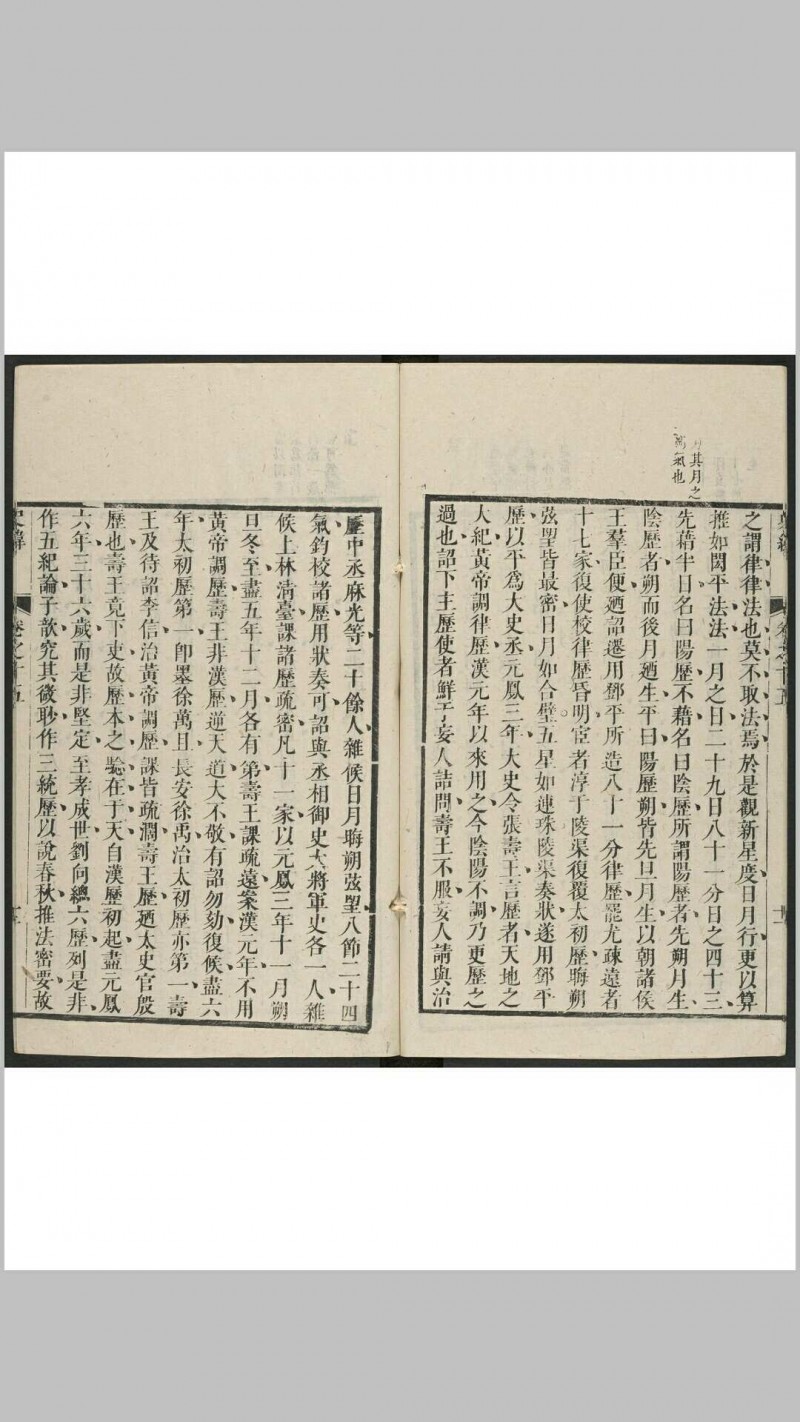 其月之
氣也
之謂律律法也莫不取法焉於是觀新星度日月行更以算
推如閎平法法一月之日二十九日八十一分日之四十三
先藉半日名曰陽歷不藉名曰陰歷所謂陽歷者先朔月生
陰歷者朔而後月廼生平曰陽歷朔皆先旦月生以朝諸侯
王羣臣便廼詔遷用鄧平所造八十一分律歷罷尤疎遠者
十七家復使校律歷昏明宦者淳于陵渠復覆太初歷晦朔
弦望皆最密日月如合璧五星如連珠陵渠奏狀遂用鄧平
歷以平爲大史丞元鳳三年大史令張壽王言歷者天地之
大紀黃帝調律歷漢元年以來用之今陰陽不調乃更歷之
過也詔下主歷使者鮮于妄人詰問壽王不服妄人請與治
歷中丞麻光等二十餘人雜候日月晦朔弦望八節二十四
氣鈞校諸歷用狀奏可詔與丞相御史大將軍史各一人雜
候上林淸臺課諸歷疏密凡十一家以元鳳三年十一月朔
旦冬至盡五年十二月各有第壽王課疏遠案漢元年不用
黃帝調歷壽王非漢歷逆天道大不敬有詔勿劾復候盡六
年太初歷第一卽墨徐萬且長安徐禹治太初歷亦第一壽
王及待詔李信治黃帝調歷課皆疏濶壽王歷廼太史官殷
歷也壽王竟下吏故歷本之驗在于天自漢歷初起盡元鳳
六年三十六歲而是非堅定至孝成世劉向總六歷列是非
作五紀論子歆究其微眇作三統歷以說春秋推法密要故
卷之十五